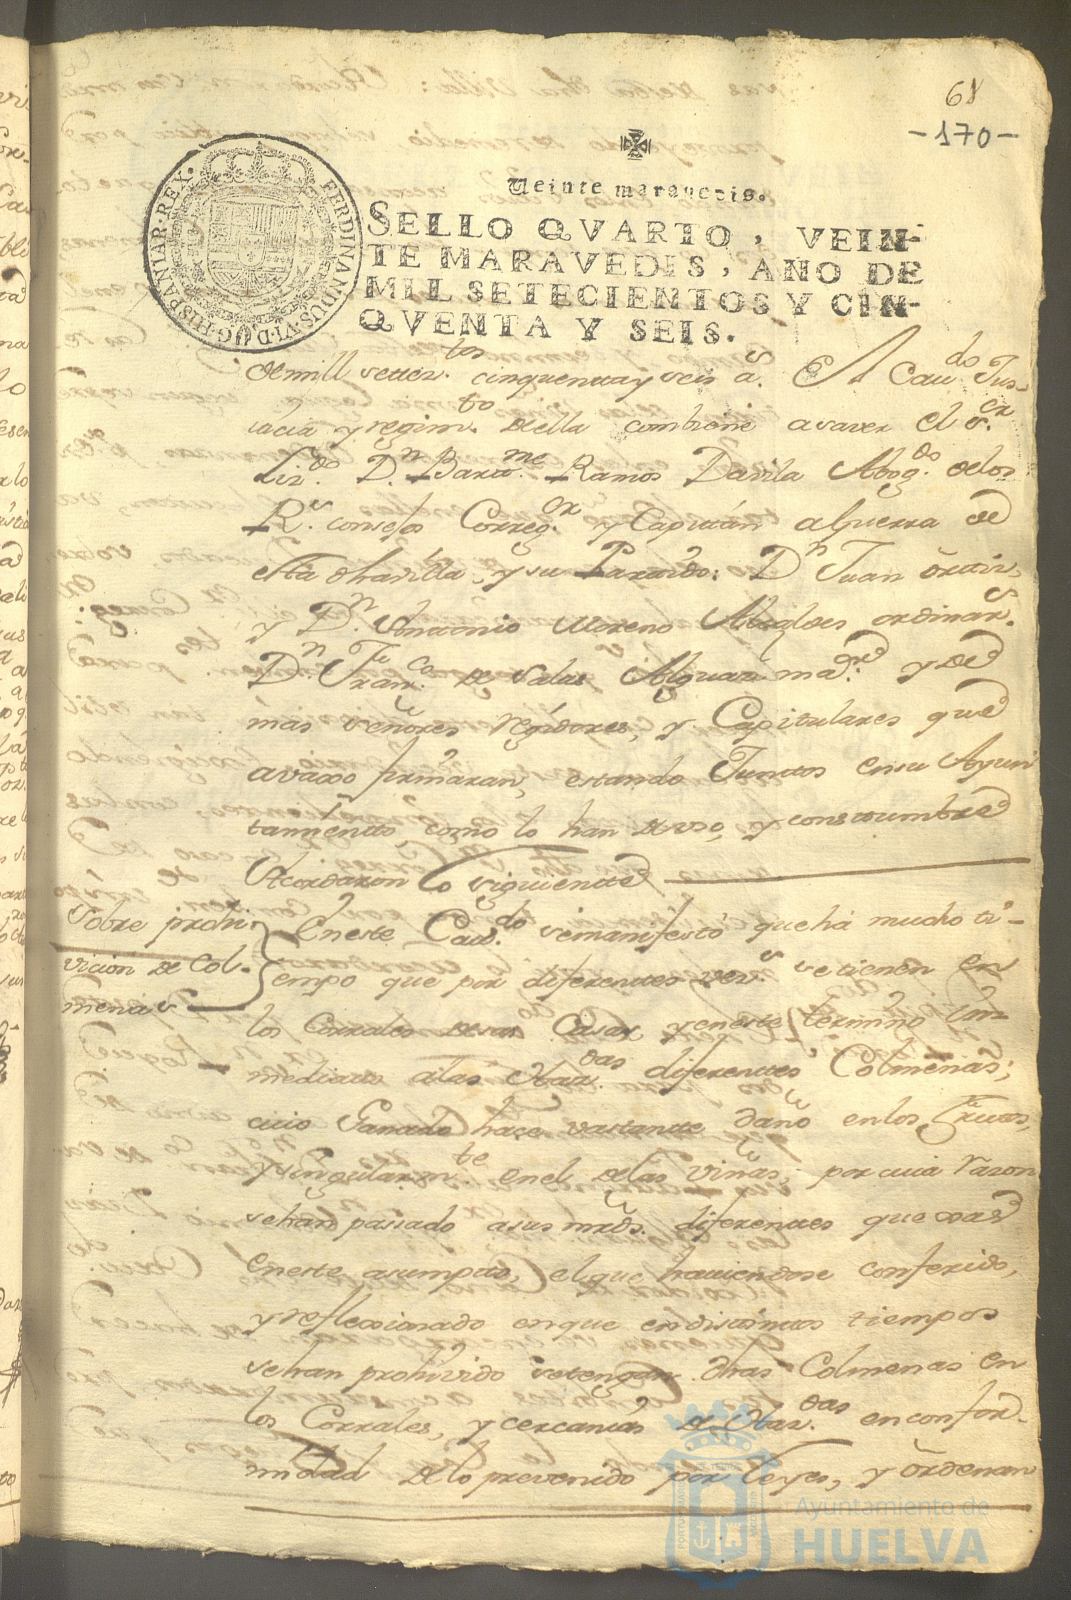 68
-170-
Veinte maravedis.
SELLO QVARTO, VEIN-
TE MARAVEDIS, AÑO DE
MIL SETECIENTOS Y CIN-
QVENTA Y SEIS.
FERDINANDUS·VI·D·G·HISPANIAR·REX·
de mill setez.tos cinquenta y seis a.s El Cav.do Jus-
ticia y regim.to de ella combiene a saver el s.or
Liz.do D.n Bartto.me Ramos Davila Abog.do delos
R.s consejos Correg.or y Capitán a Guerra de
esta dha villa, y su Partido: D.n Juan ortiz,
y D.n Antonio Moreno Alcaldes ordinar.s
D.n Fran.co de Salas Alguazil ma.r y de
mas señores regidores, y Capitulares que
avaxo firmaran, estando Juntos en su Ayun
tamiento como lo han de uso, y constumbre
Acordaron lo siguiente
Sobre prohi
vicion de Col-
menas
En este Cav.do se manifestó que há mucho ti-
empo que por diferentes vez.s se tienen en
los Corrales de sus Casas y en este termino In-
mediato a las diferentes Colmenas;
cuio Ganado haze vastante daño en los frutos,
y singularm.te en el de las viñas; por cuia razon
se han pasado a sus mrds. diferentes quexas
en este asumpto, el que haviendose conferido,
y reflexionado en que en distintos tiempos
se han prohivido se tengan dhas Colmenas en
los Corrales, y cercanias de en confor-
midad de lo prevenido por Leyes, y ordenan
Ayuntamiento de
HUELVA